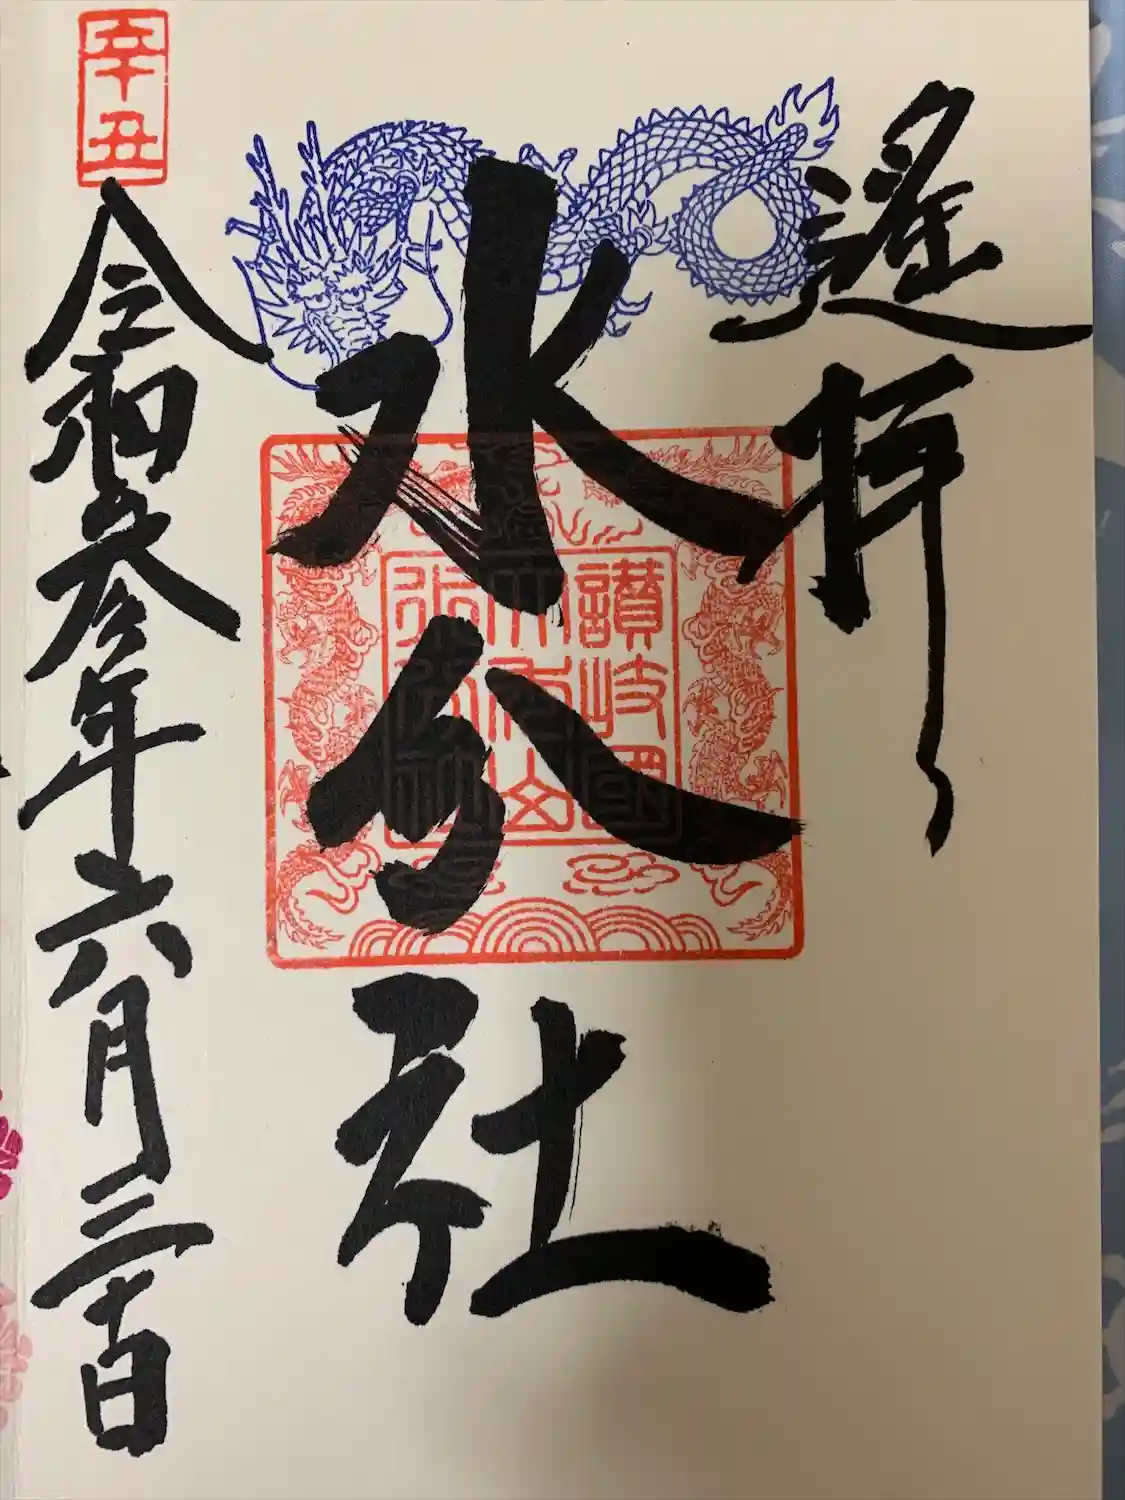 遙拝
水分社
讃岐國
辛丑
令和参年六月三十日